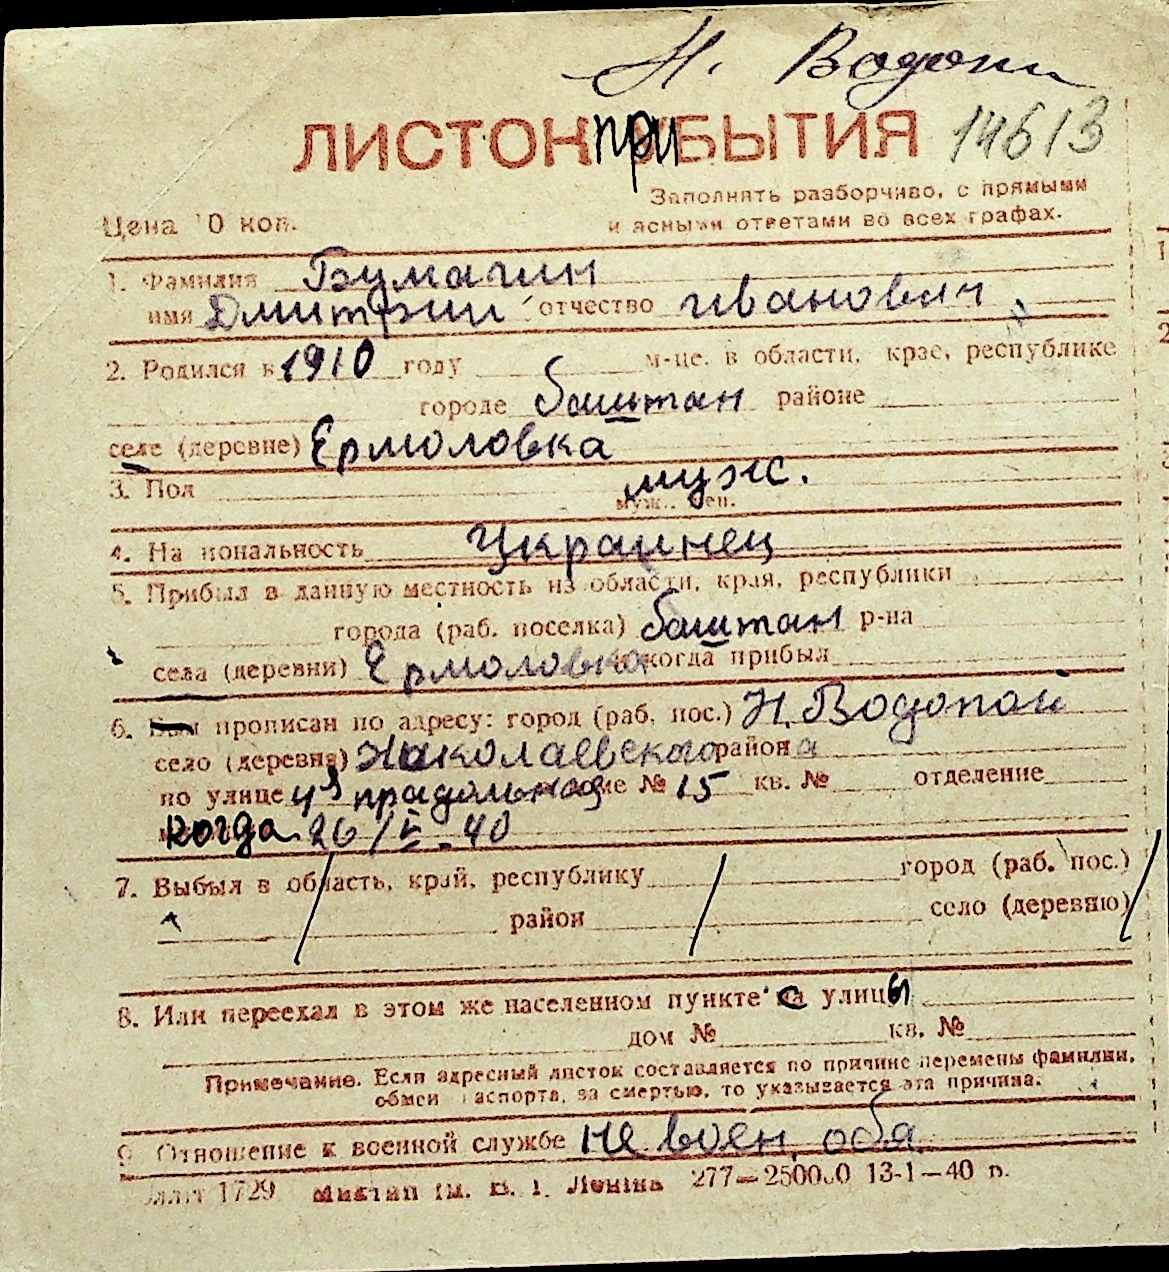 Н. Водопи
ЛИСТОК ПРИБЫТИЯ 14613
Заполнять разборчиво, с прямыми
Цена 10 коп. и ясными ответами во всех графах.
1. Фамилия Бумагин
имя Дмитрий отчество Иванович
2. Родился в 1910 году м-це. в области, крае, республике
городе Баштан районе
селе (деревне) Ермоловка
3. Пол муж.
муж., жен.
4. Национальность Украинец
5. Прибыл в данную местность из области, края, республики
города (раб. поселка) Баштан р-на
села (деревни) Ермоловка когда прибыл
6. прописан по адресу: город (раб. пос.) Н. Водопой
село (деревня) Николаевского района
по улице 43 прадольная № 15 кв. № отделение
когда 26/V-40
7. Выбыл в область, край, республику город (раб. пос.)
район село (деревню)
8. Или переехал в этом же населенном пункте с улицы
дом № кв. №
Примечание. Если адресный листок составляется по причине перемены фамилии,
обмен паспорта, за смертью, то указывается эта причина.
9. Отношение к военной службе не воен. обя.
1729 Леніна 277—250000 13-1—40 р.